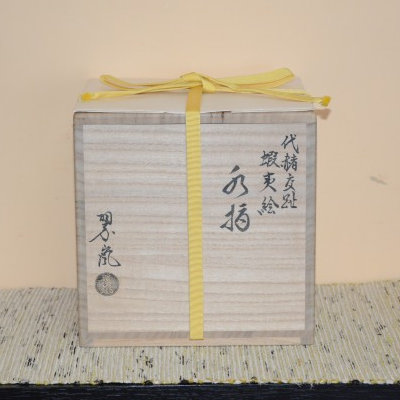 代赭交趾
蝦夷絵
水指
翠嵐